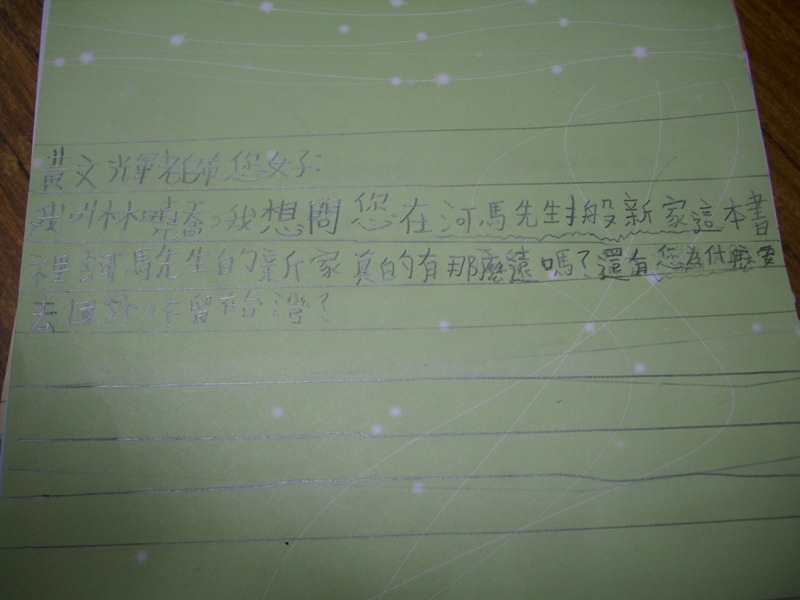 黃文輝老師您好:
我叫林曉喬。我想問您在河馬先生搬新家這本書
裡河馬先生的新家真的有那麼遠嗣?還有您為什麼要
去國外,不留台灣?